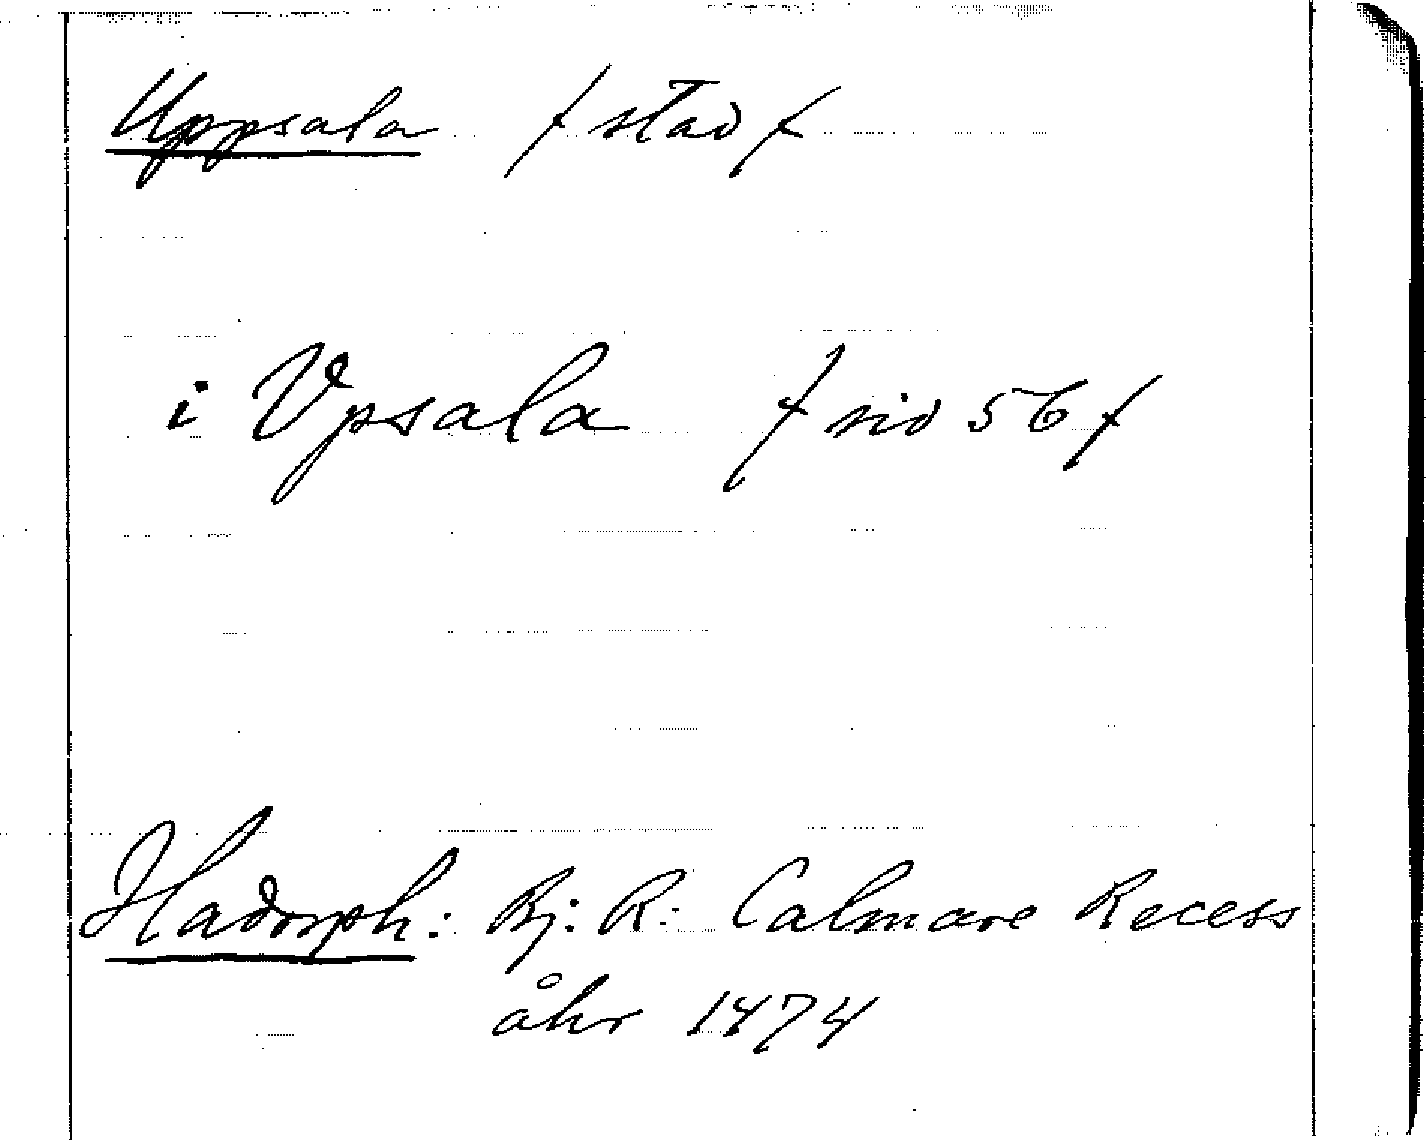 Uppsala / stad /
i Vpsala / sid 56 /
Hadorph: Bj: R: Calmare Recess
åhr 1474